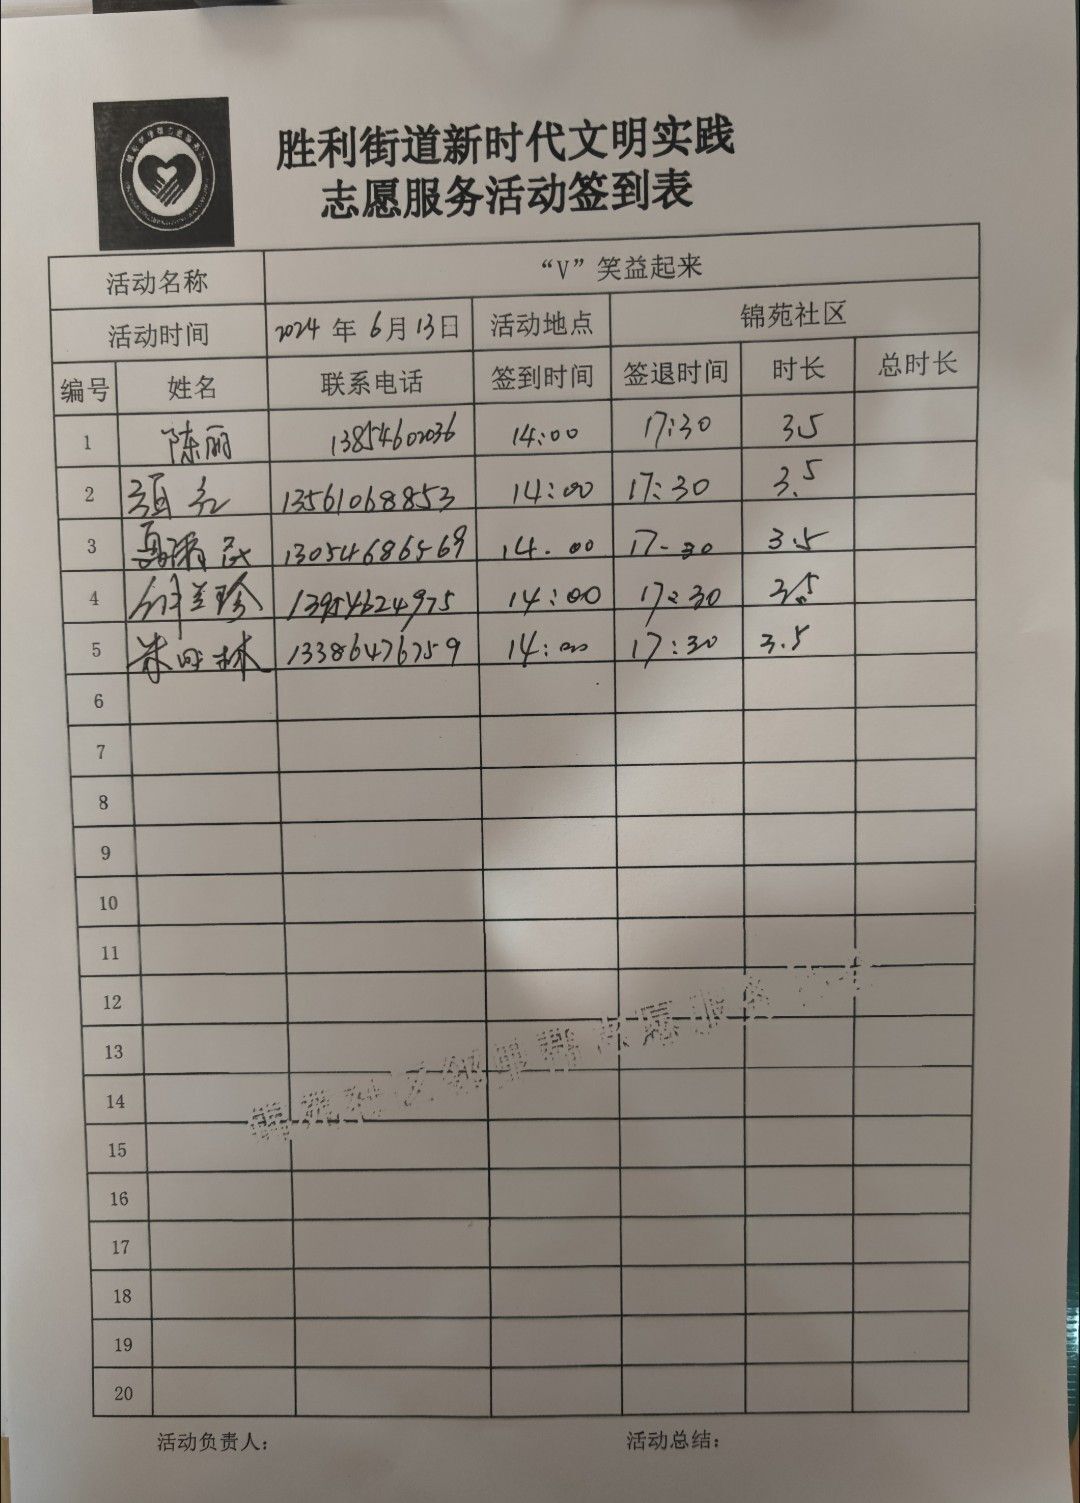 胜利街道新时代文明实践
志愿服务活动签到表
活动名称 “V”笑益起来
活动时间 2024年6月13日 活动地点 锦苑社区
编号 姓名 联系电话 签到时间 签退时间 时长 总时长
1 陈丽 13854602036 14:00 17:30 3.5
2 13561068853 14:00 17:30 3.5
3 13054686569 14:00 17:30 3.5
4 兰珍 13954624975 14:00 17:30 3.5
5 林 13386476759 14:00 17:30 3.5
6
7
8
9
10
11
12
13
14
15
16
17
18
19
20
锦苑社区邻里帮志愿服务
活动负责人： 活动总结：